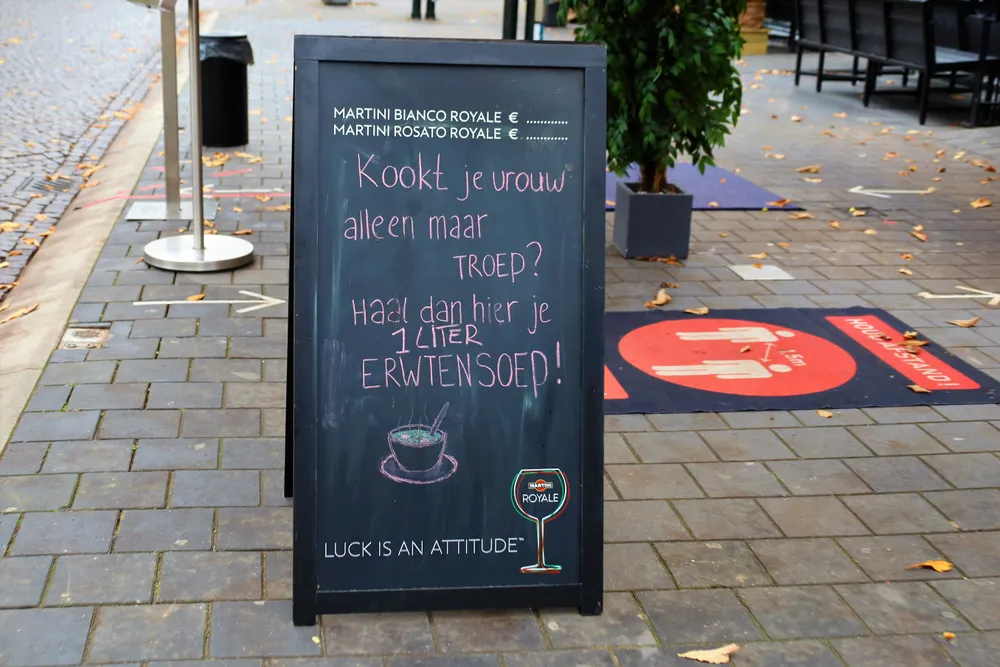 MARTINI BIANCO ROYALE € ............
MARTINI ROSATO ROYALE € ............
Kookt je vrouw
alleen maar
TROEP?
Haal dan hier je
1 LITER
ERWTENSOEP!
MARTINI
ROYALE
LUCK IS AN ATTITUDE™
1,5m